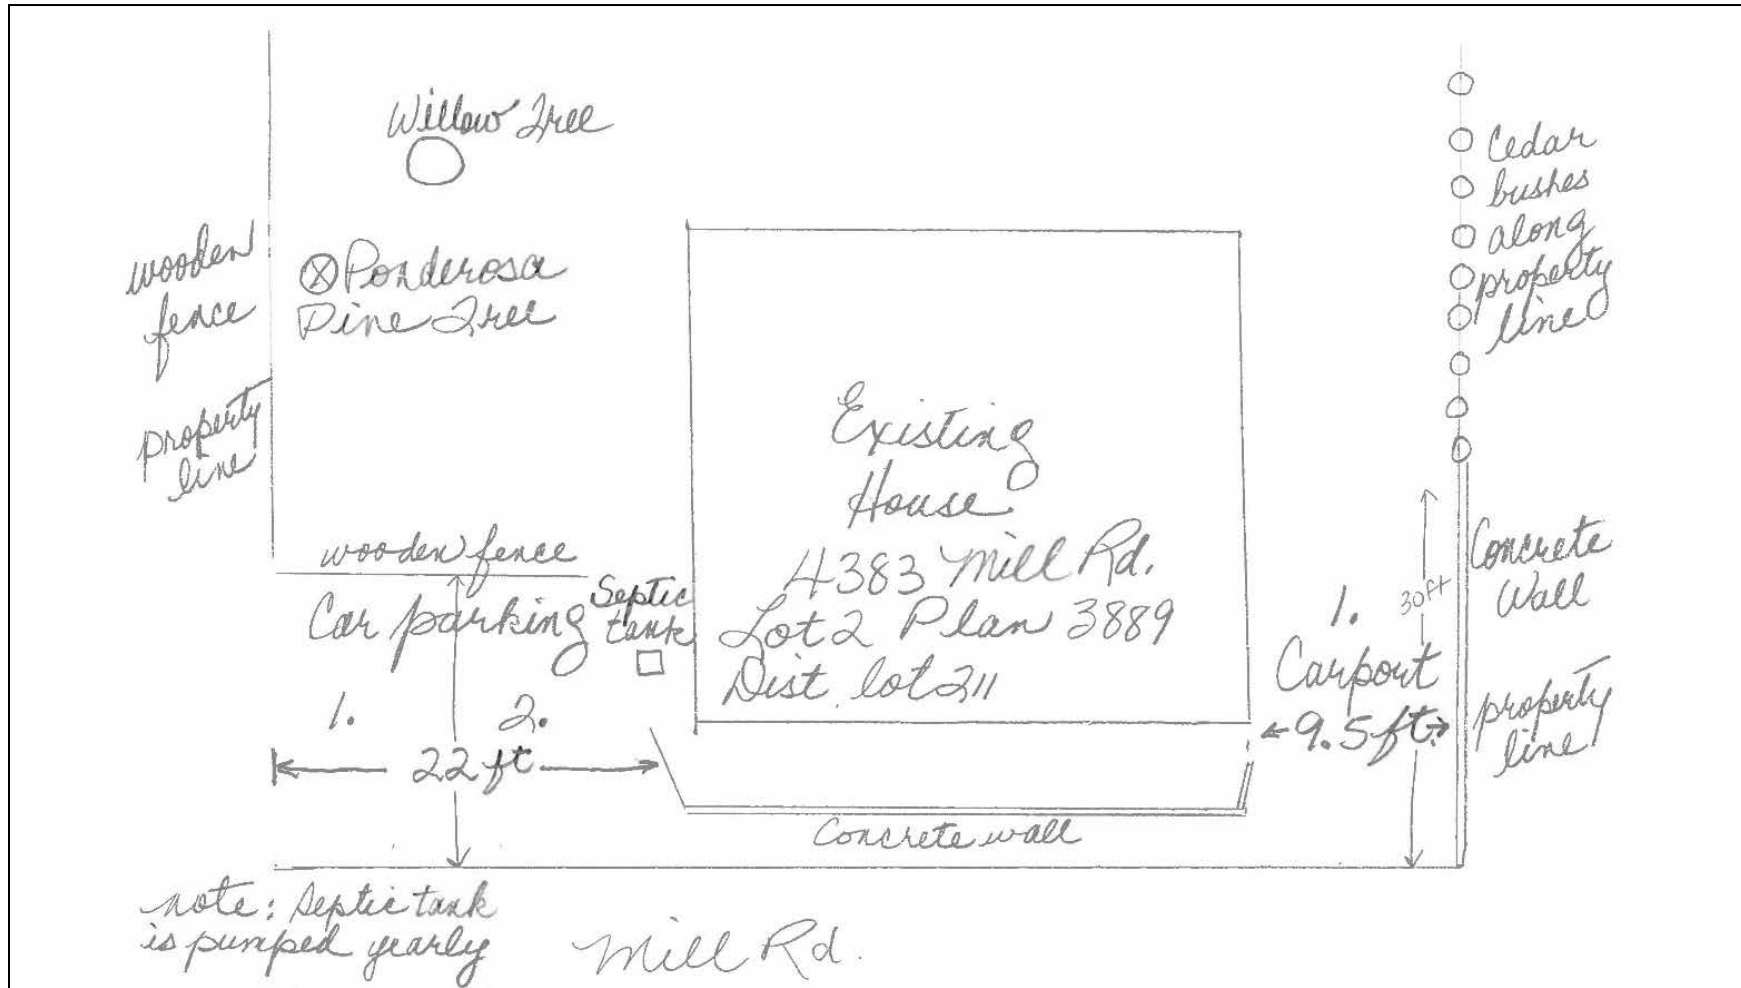 Willow Tree
wooden
fence
property
line
Ponderosa
Pine Tree
Cedar
bushes
along
property
line
Existing
House
4383 Mill Rd.
Lot 2 Plan 3889
Dist. lot 211
wooden fence
Car parking
Septic
tank
1. 2.
22 ft
1.
Carport
9.5 ft.
30 ft
Concrete
Wall
property
line
Concrete wall
note: Septic tank
is pumped yearly
Mill Rd.